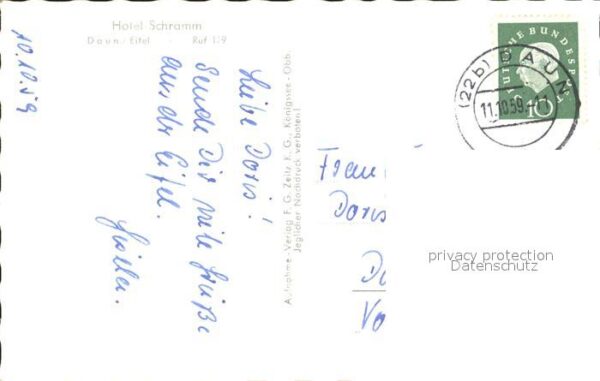 Hotel Schramm
Daun/Eifel Ruf 119
10.10.59
Liebe Doris!
Sende Dir viele Grüße
aus der Eifel.
Aufnahme-Verlag F. G. Zeitz K. G., Königssee-Obb.
Jeglicher Nachdruck verboten!
DEUTSCHE BUNDESPOST
10
(22b) DAUN
11.10.59.-11
Frau
Doris
privacy protection
Datenschutz